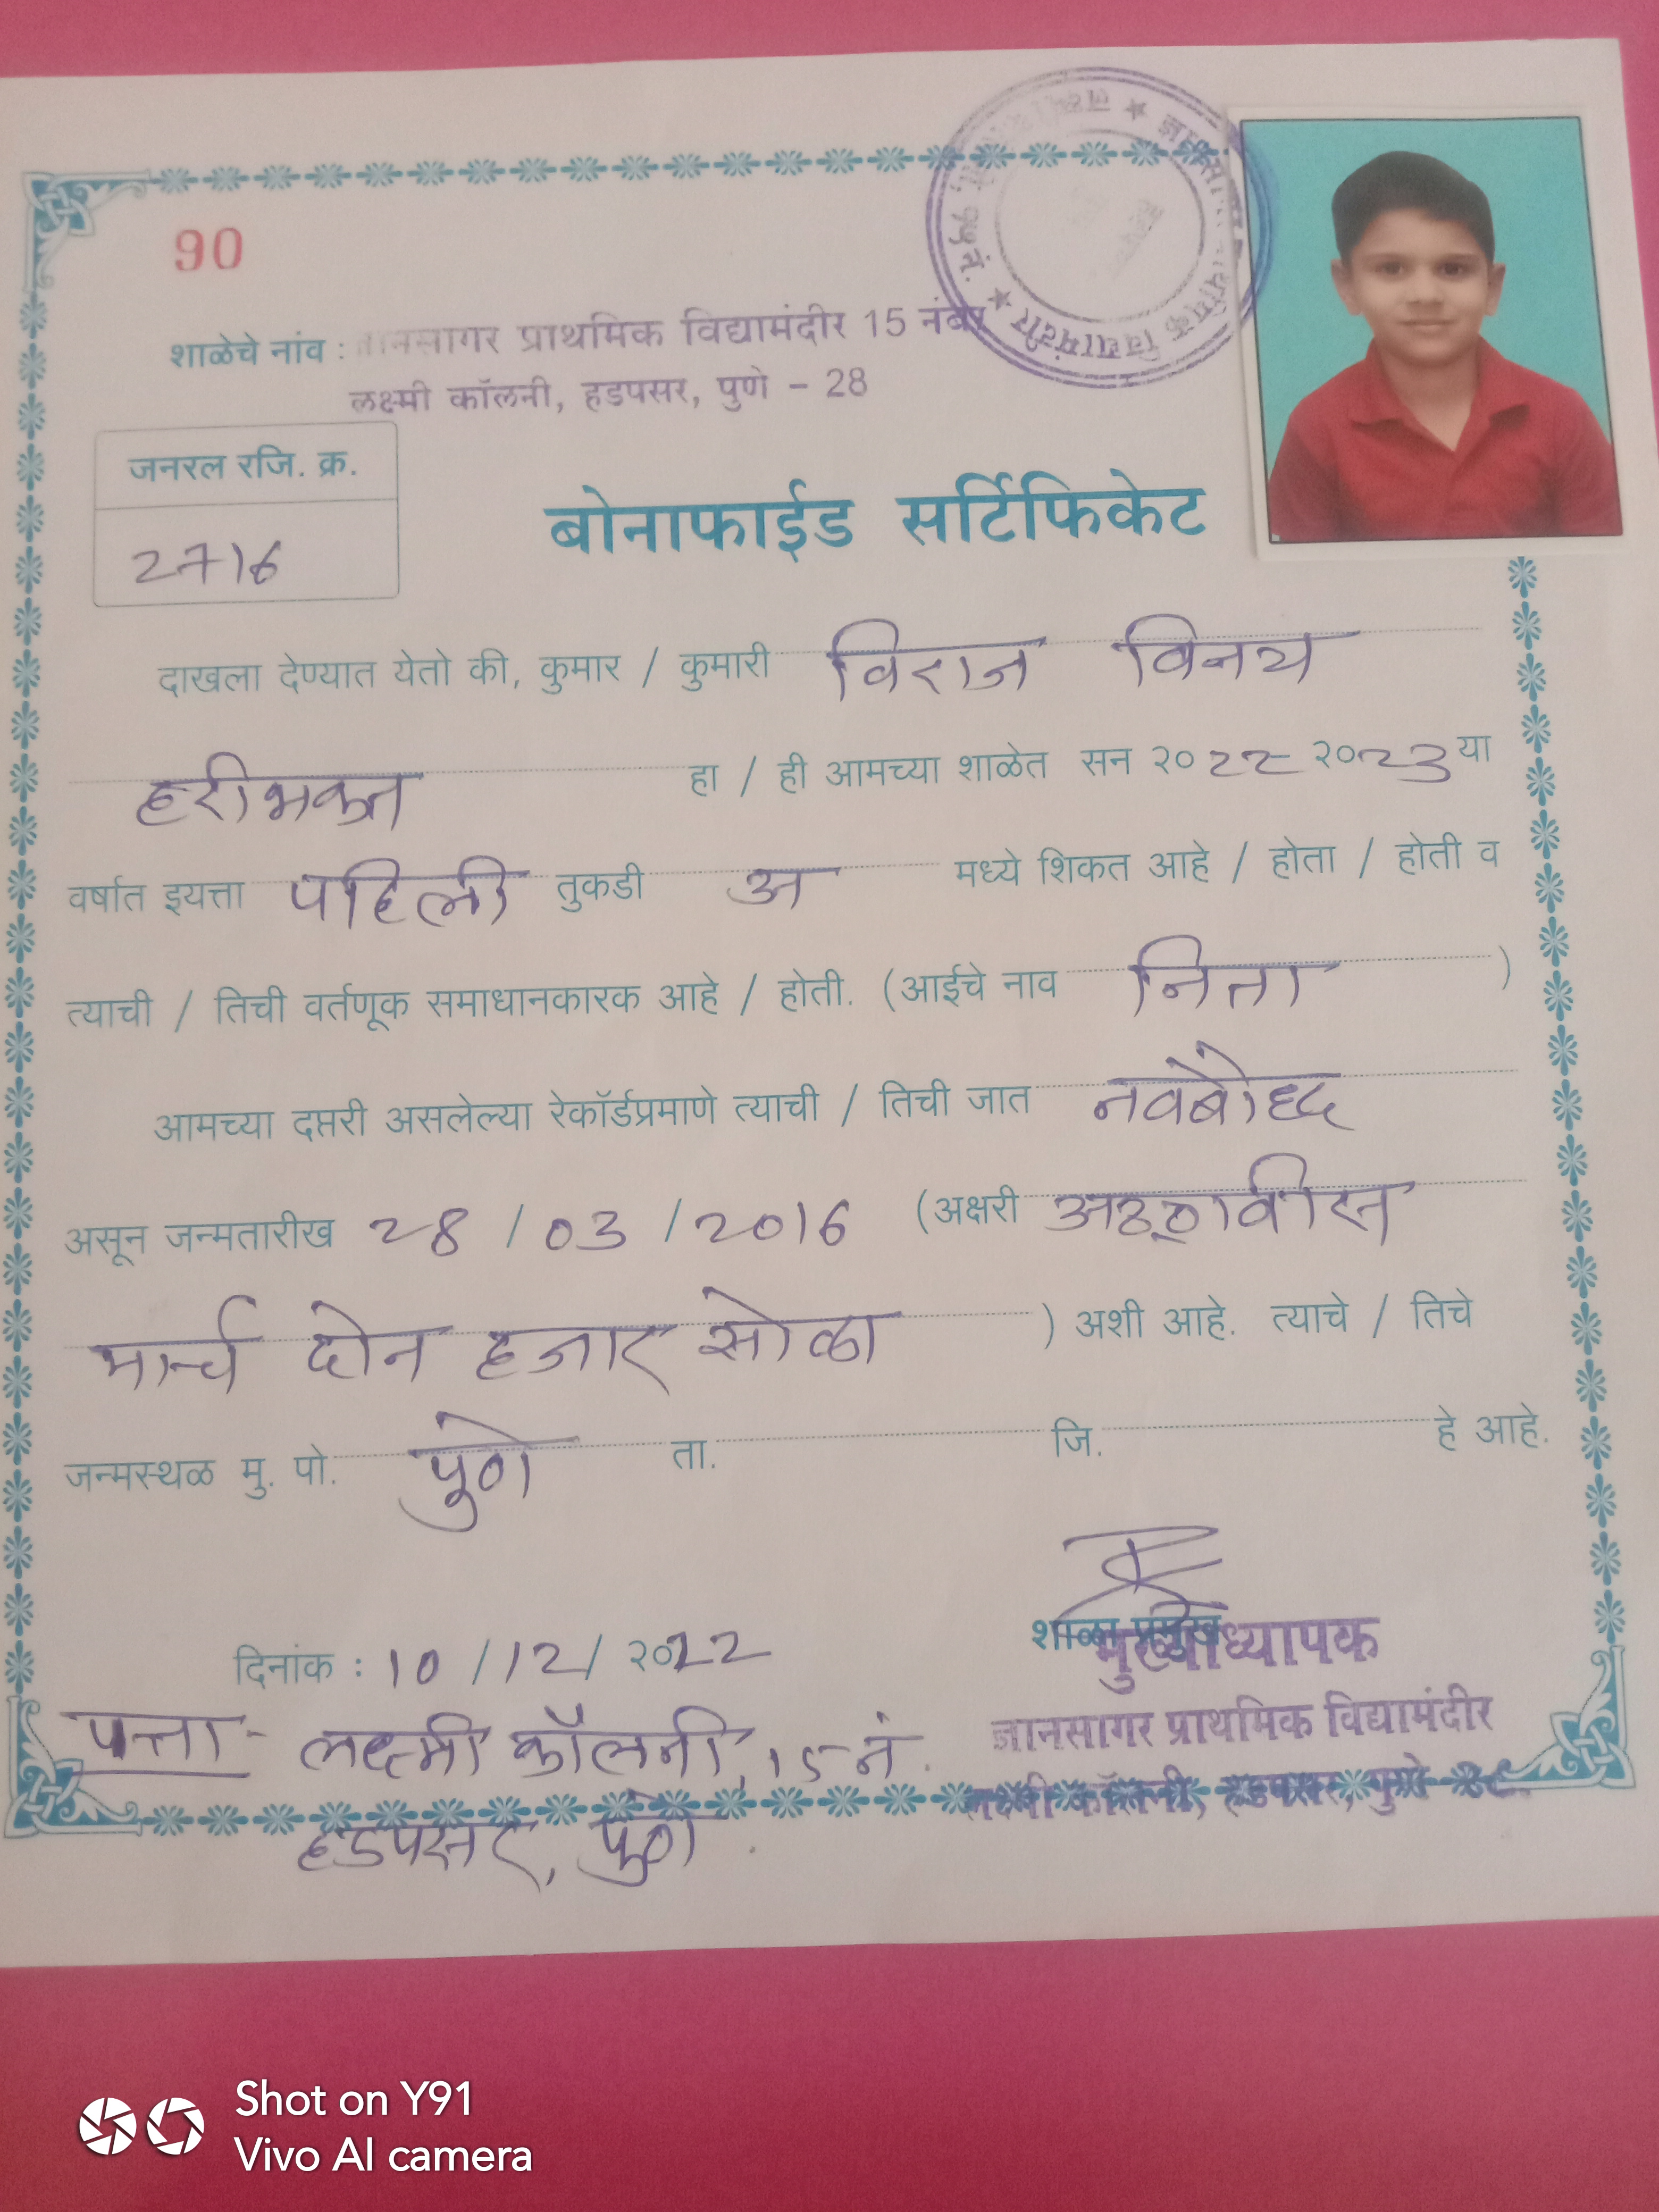 90
शाळेचे नांव : ज्ञानसागर प्राथमिक विद्यामंदीर 15 नंबर
लक्ष्मी कॉलनी, हडपसर, पुणे - 28
जनरल रजि. क्र.
2716
बोनाफाईड सर्टिफिकेट
दाखला देण्यात येतो की, कुमार / कुमारी विराज विनय
हरीभक्त हा / ही आमच्या शाळेत सन २०22 २०23 या
वर्षात इयत्ता पहिली तुकडी अ मध्ये शिकत आहे / होता / होती व
त्याची / तिची वर्तणूक समाधानकारक आहे / होती. (आईचे नाव निता )
आमच्या दप्तरी असलेल्या रेकॉर्डप्रमाणे त्याची / तिची जात नवबौद्ध
असून जन्मतारीख 28 / 03 / 2016 (अक्षरी अठ्ठावीस
मार्च दोन हजार सोळा ) अशी आहे. त्याचे / तिचे
जन्मस्थळ मु. पो. पुणे ता. जि. हे आहे.
शाळा प्रमुख
मुख्याध्यापक
दिनांक : 10 / 12 / २०22
ज्ञानसागर प्राथमिक विद्यामंदीर
लक्ष्मी कॉलनी, हडपसर, पुणे - 28.
पत्ता - लक्ष्मी कॉलनी, 15 नं.
हडपसर, पुणे.
Shot on Y91
Vivo AI camera